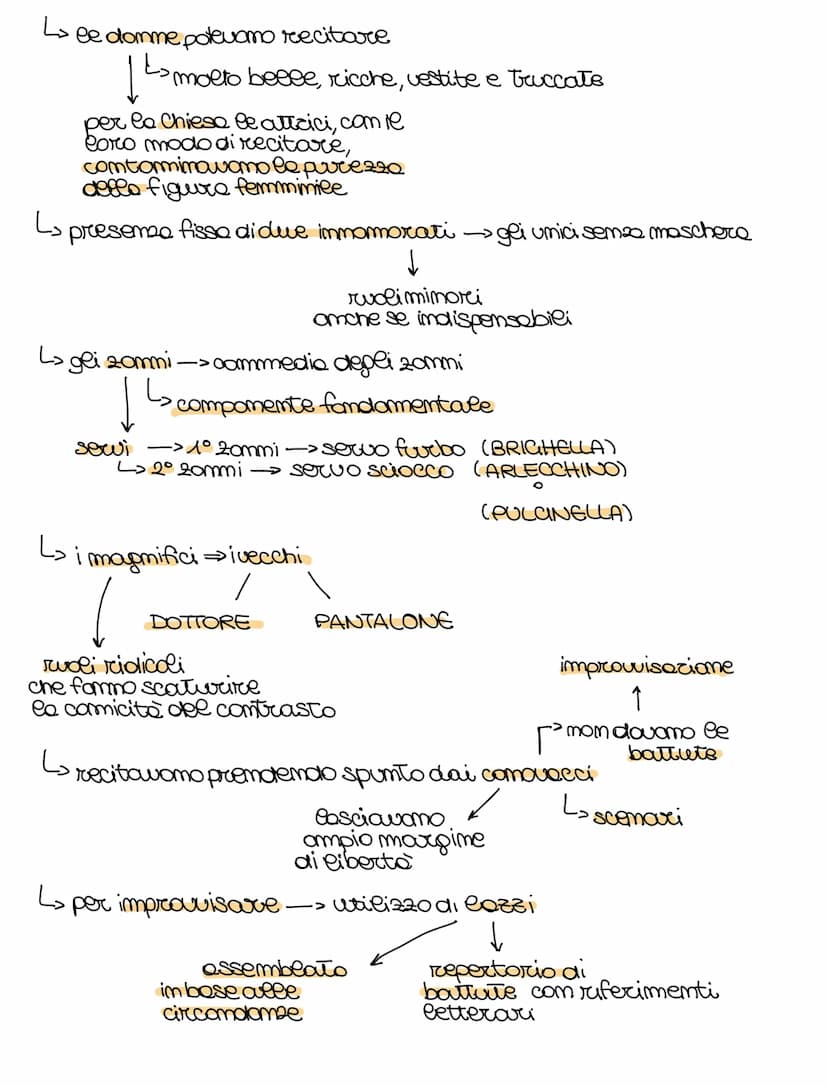 ↳ le donne potevano recitare
↳ molto belle, ricche, vestite e truccate
per la Chiesa le attrici, con il
loro modo di recitare,
contaminavano la purezza
della figura femminile
↳ presenza fissa di due innamorati → gli unici senza maschera
ruoli minori
anche se indispensabili
↳ gli zanni → commedia degli zanni
↳ componente fondamentale
servi → 1° zanni → servo furbo (BRIGHELLA)
↳ 2° zanni → servo sciocco (ARLECCHINO)
o
(PULCINELLA)
↳ i magnifici ⇒ i vecchi
DOTTORE PANTALONE
ruoli ridicoli
che fanno scaturire
la comicità del contrasto
improvvisazione
↱ non davano le
battute
↳ recitavano prendendo spunto dai canovacci
↳ scenari
lasciavano
ampio margine
di libertà
↳ per improvvisare → utilizzo di lazzi
assemblato
in base alle
circostanze
repertorio di
battute con riferimenti
letterari